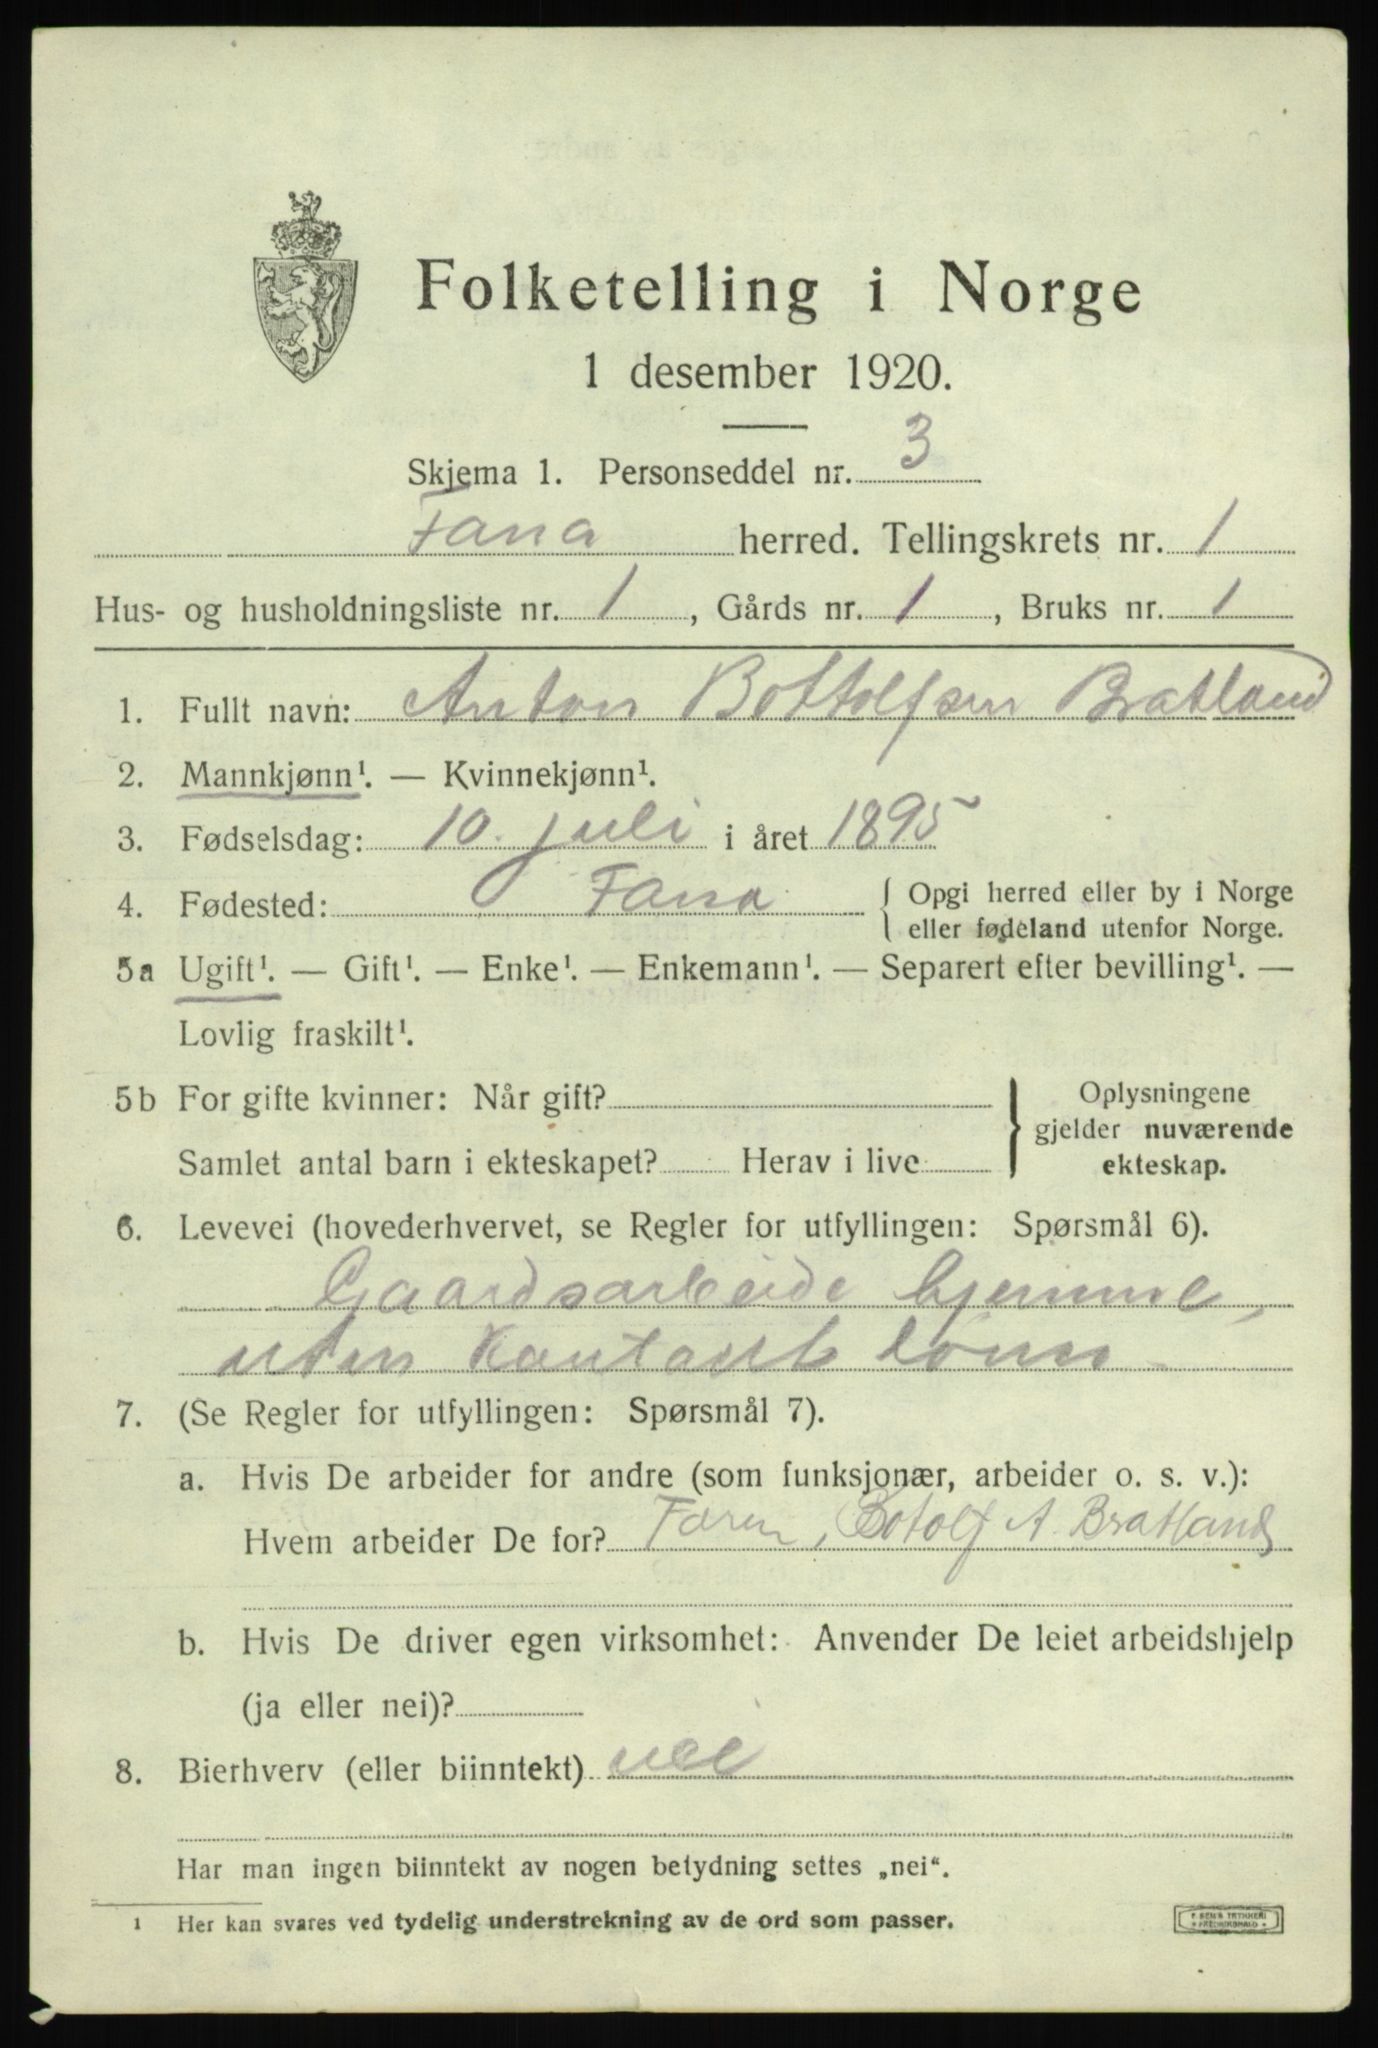 Folketelling i Norge
1 desember 1920.
Skjema 1. Personseddel nr. 3
Fana herred. Tellingskrets nr. 1
Hus- og husholdningsliste nr. 1, Gårds nr. 1, Bruks nr. 1
1. Fullt navn: Anton Bottolfsen Bratland
2. Mannkjønn¹. — Kvinnekjønn¹.
3. Fødselsdag: 10. juli i året 1895
4. Fødested: Fana { Opgi herred eller by i Norge
eller fødeland utenfor Norge.
5a Ugift¹. — Gift¹. — Enke¹. — Enkemann¹. — Separert efter bevilling¹. —
Lovlig fraskilt¹.
5b For gifte kvinner: Når gift? } Oplysningene
gjelder nuværende
Samlet antal barn i ekteskapet? Herav i live ekteskap.
6. Levevei (hovederhvervet, se Regler for utfyllingen: Spørsmål 6).
Gaardsarbeide hjemme,
uten kontant lønn
7. (Se Regler for utfyllingen: Spørsmål 7).
a. Hvis De arbeider for andre (som funksjonær, arbeider o. s. v.):
Hvem arbeider De for? Faren, Botolf A. Bratland
b. Hvis De driver egen virksomhet: Anvender De leiet arbeidshjelp
(ja eller nei)?
8. Bierhverv (eller biinntekt) nei
Har man ingen biinntekt av nogen betydning settes „nei“.
1 Her kan svares ved tydelig understrekning av de ord som passer.